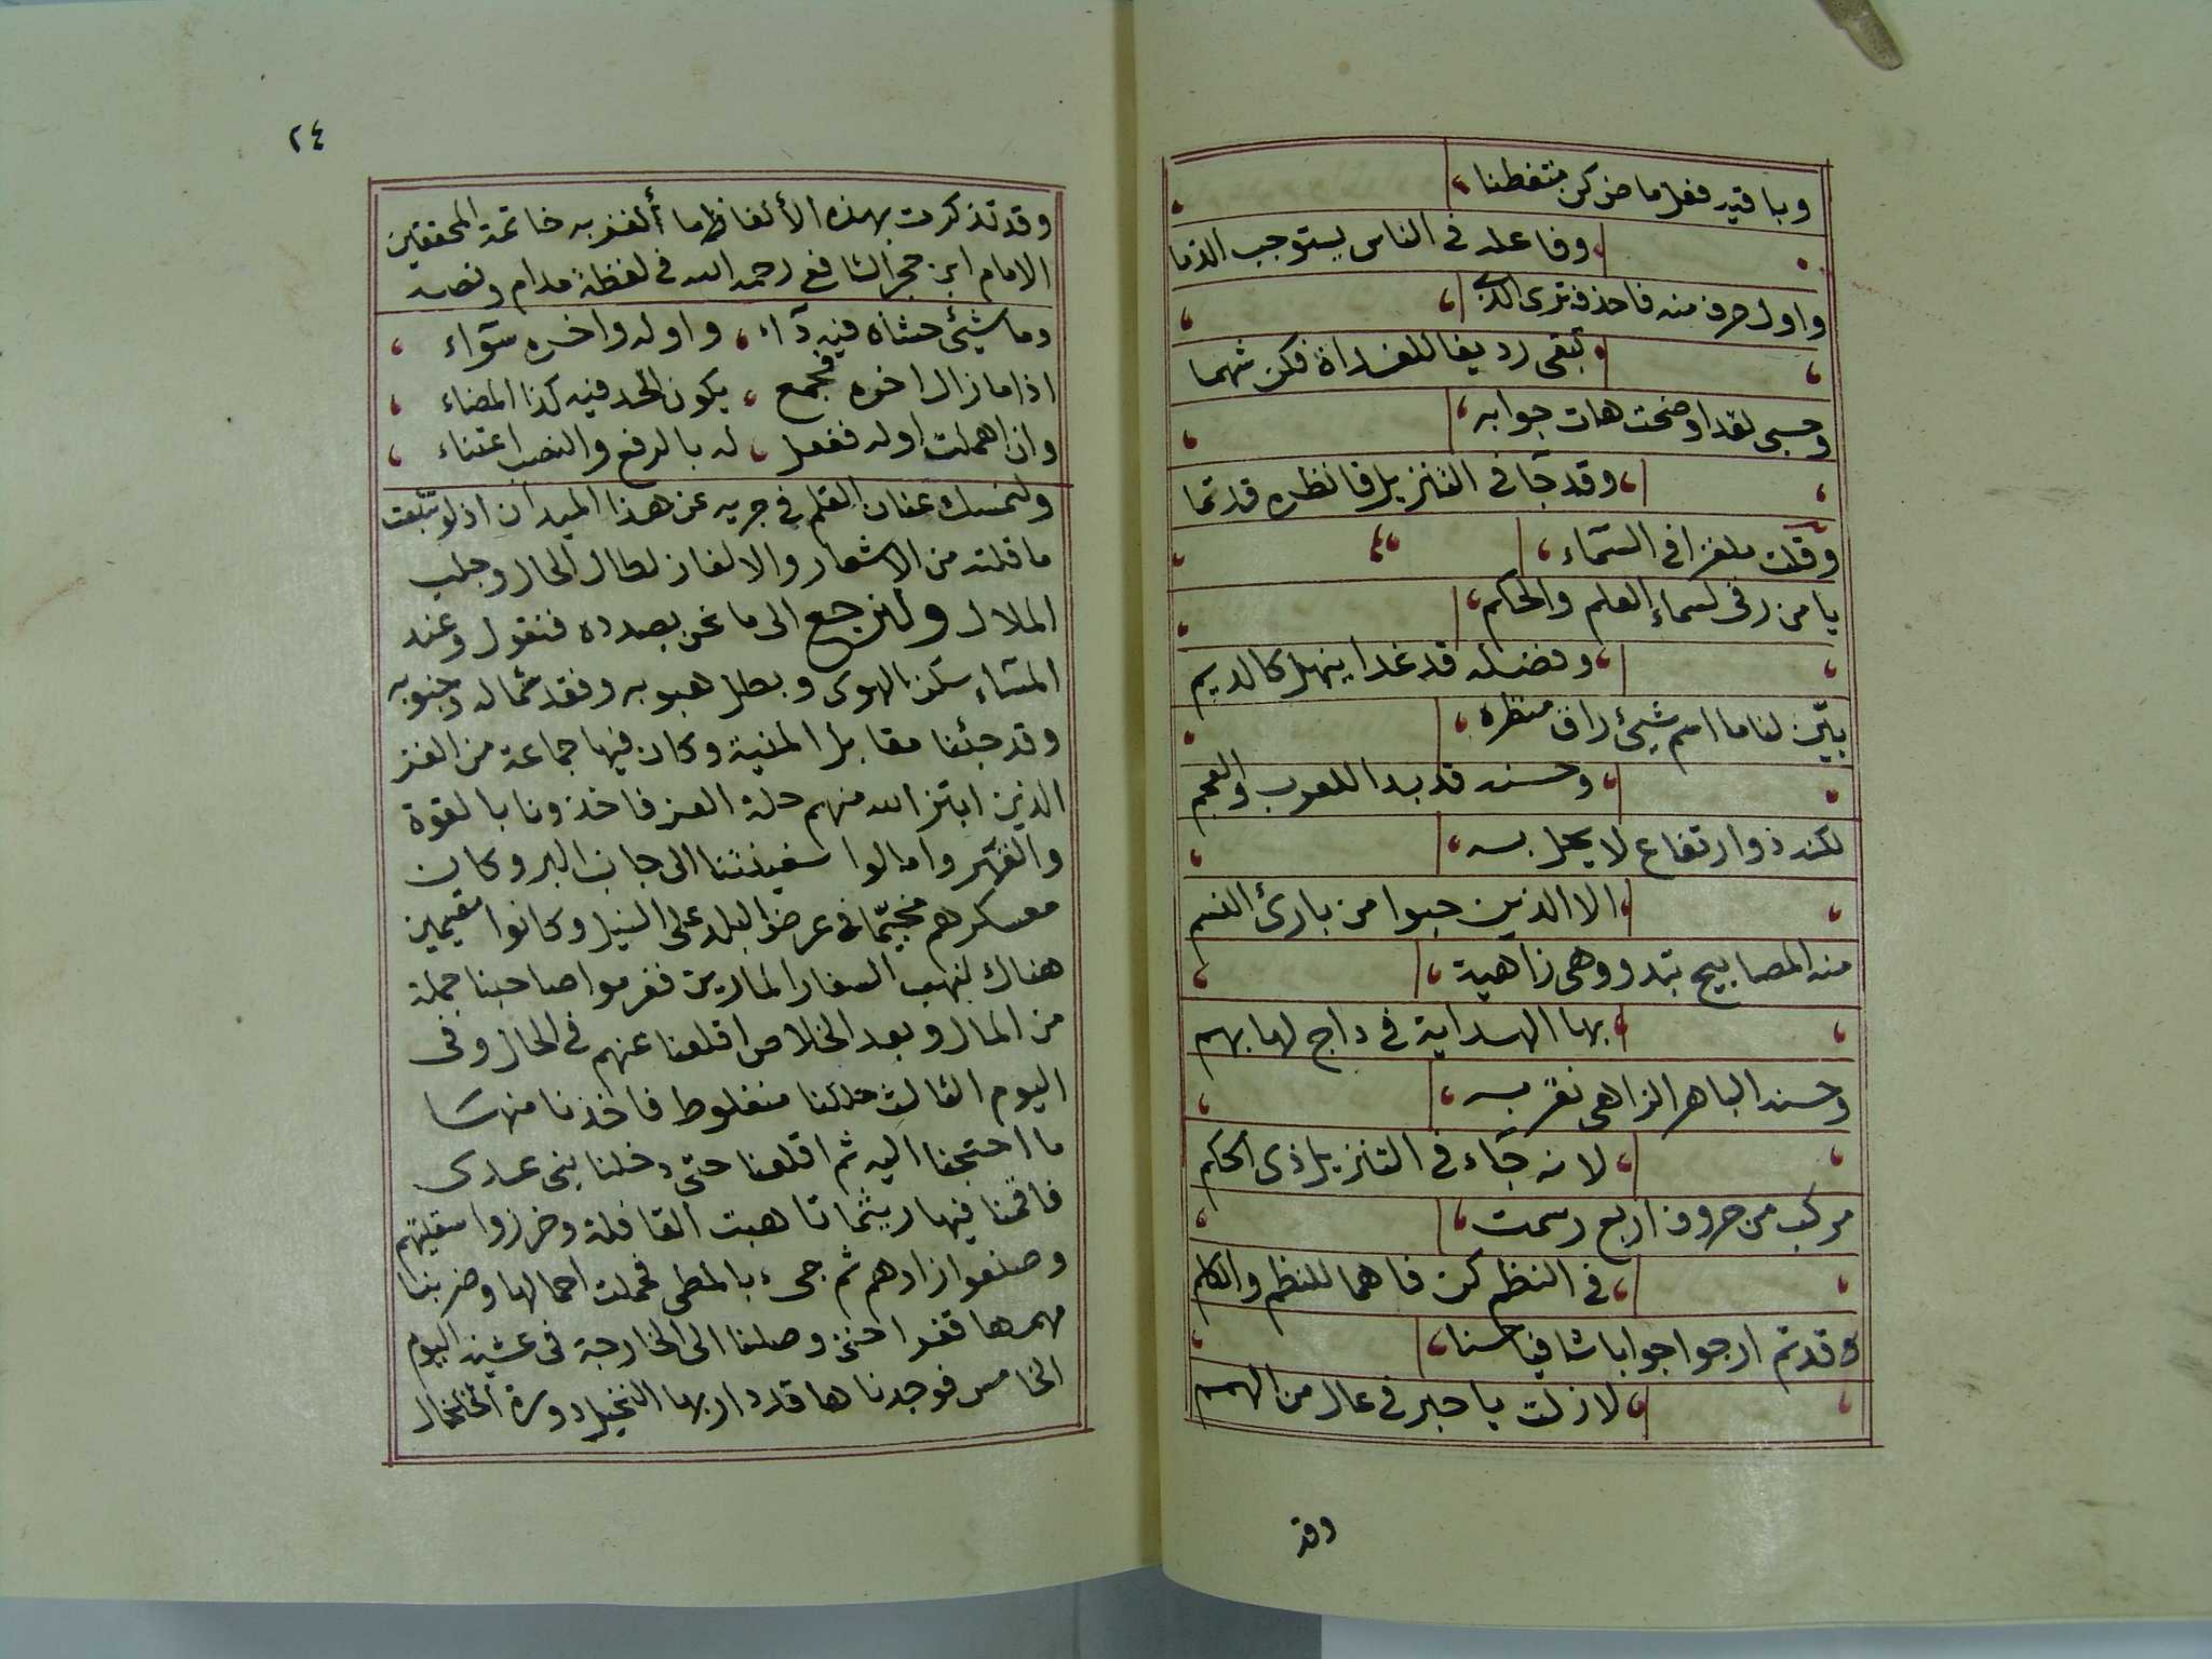 وباقيه فعل ماض كن متفطنا
وفاعله في الناس يستوجب الذما
واول حرف منه فاحذف ترى الذي
تبقى رديفا للغداة فكن شهما
وحسبي لقد اوضحت هات جوابه
وقد جآ في التنزيل فانظره قد تما
وقلت ملغزا في السمآء
يا من رقى لسماء العلم والحكم
وفضله قد غدا ينهل كالديم
بيّن لنا ما اسم شيئ راق منظره
وحسنه قد بدا للعرب والعجم
لكنه ذو ارتفاع لا يحل به
الا الذين حبوا من بارئ النسم
منه المصابيح تبدو وهي زاهية
بها الهداية في داج لها بهم
وحسنه الباهر الزاهي نقر به
لانه جآء في التنزيل ذي الحكم
مركب من حروف اربع رسمت
في النظم كن فاهما للنظم والكلم
وقد تم ارجو جوابا شافيا حسنا
لا زلت يا حبر في عال من الهمم
وقد
٢٤
وقد تذكرت بهذه الألفاظ ما ألغز به خاتمة المحققين
الامام ابن حجر الشافعي رحمه الله في لفظة مدام ونصه
وما شيئ حشاه فيه دآء، واوله واخره سوآء
اذا ما زال اخره فجمع، يكون الحد فيه كذا المضاء
وان اهملت اوله ففعل، له بالرفع والنصب اعتناء
ولنمسك عنان القلم في جريه عن هذا الميدان اذ لو تتبعت
ما قلته من الاشعار والالغاز لطال الحال وجلب
الملال ولنرجع الى ما نحن بصدده فنقول وعند
المسآء سكن الهوى وبطل هبوبه وفقد شماله وجنوبه
وقد جئنا مقابل المنية وكان فيها جماعة من الغز
الذين ابتز الله منهم حلة العز فاخذونا بالقوة
والقهر وامالوا سفينتنا الى جانب البر وكان
معسكرهم مخيّما في عرض البلد على النيل وكانوا مقيمين
هناك لنهب السفار المارين فغرموا صاحبنا جملة
من المال وبعد الخلاص اقلعنا عنهم في الحال وفي
اليوم الثالث حللنا منفلوط فاخذنا منها
ما احتجنا اليه ثم اقلعنا حتى دخلنا بني عدى
فاقمنا فيها ريثما تاهبت القافلة وخرزوا سقيتهم
وصنعوا ازادهم ثم جيء بالمطي فحملت احمالها وضربنا
مهمها قفرا حتى وصلنا الى الخارجة في عشية اليوم
الخامس فوجدناها قد دار بها النخيل دورة الخلخال